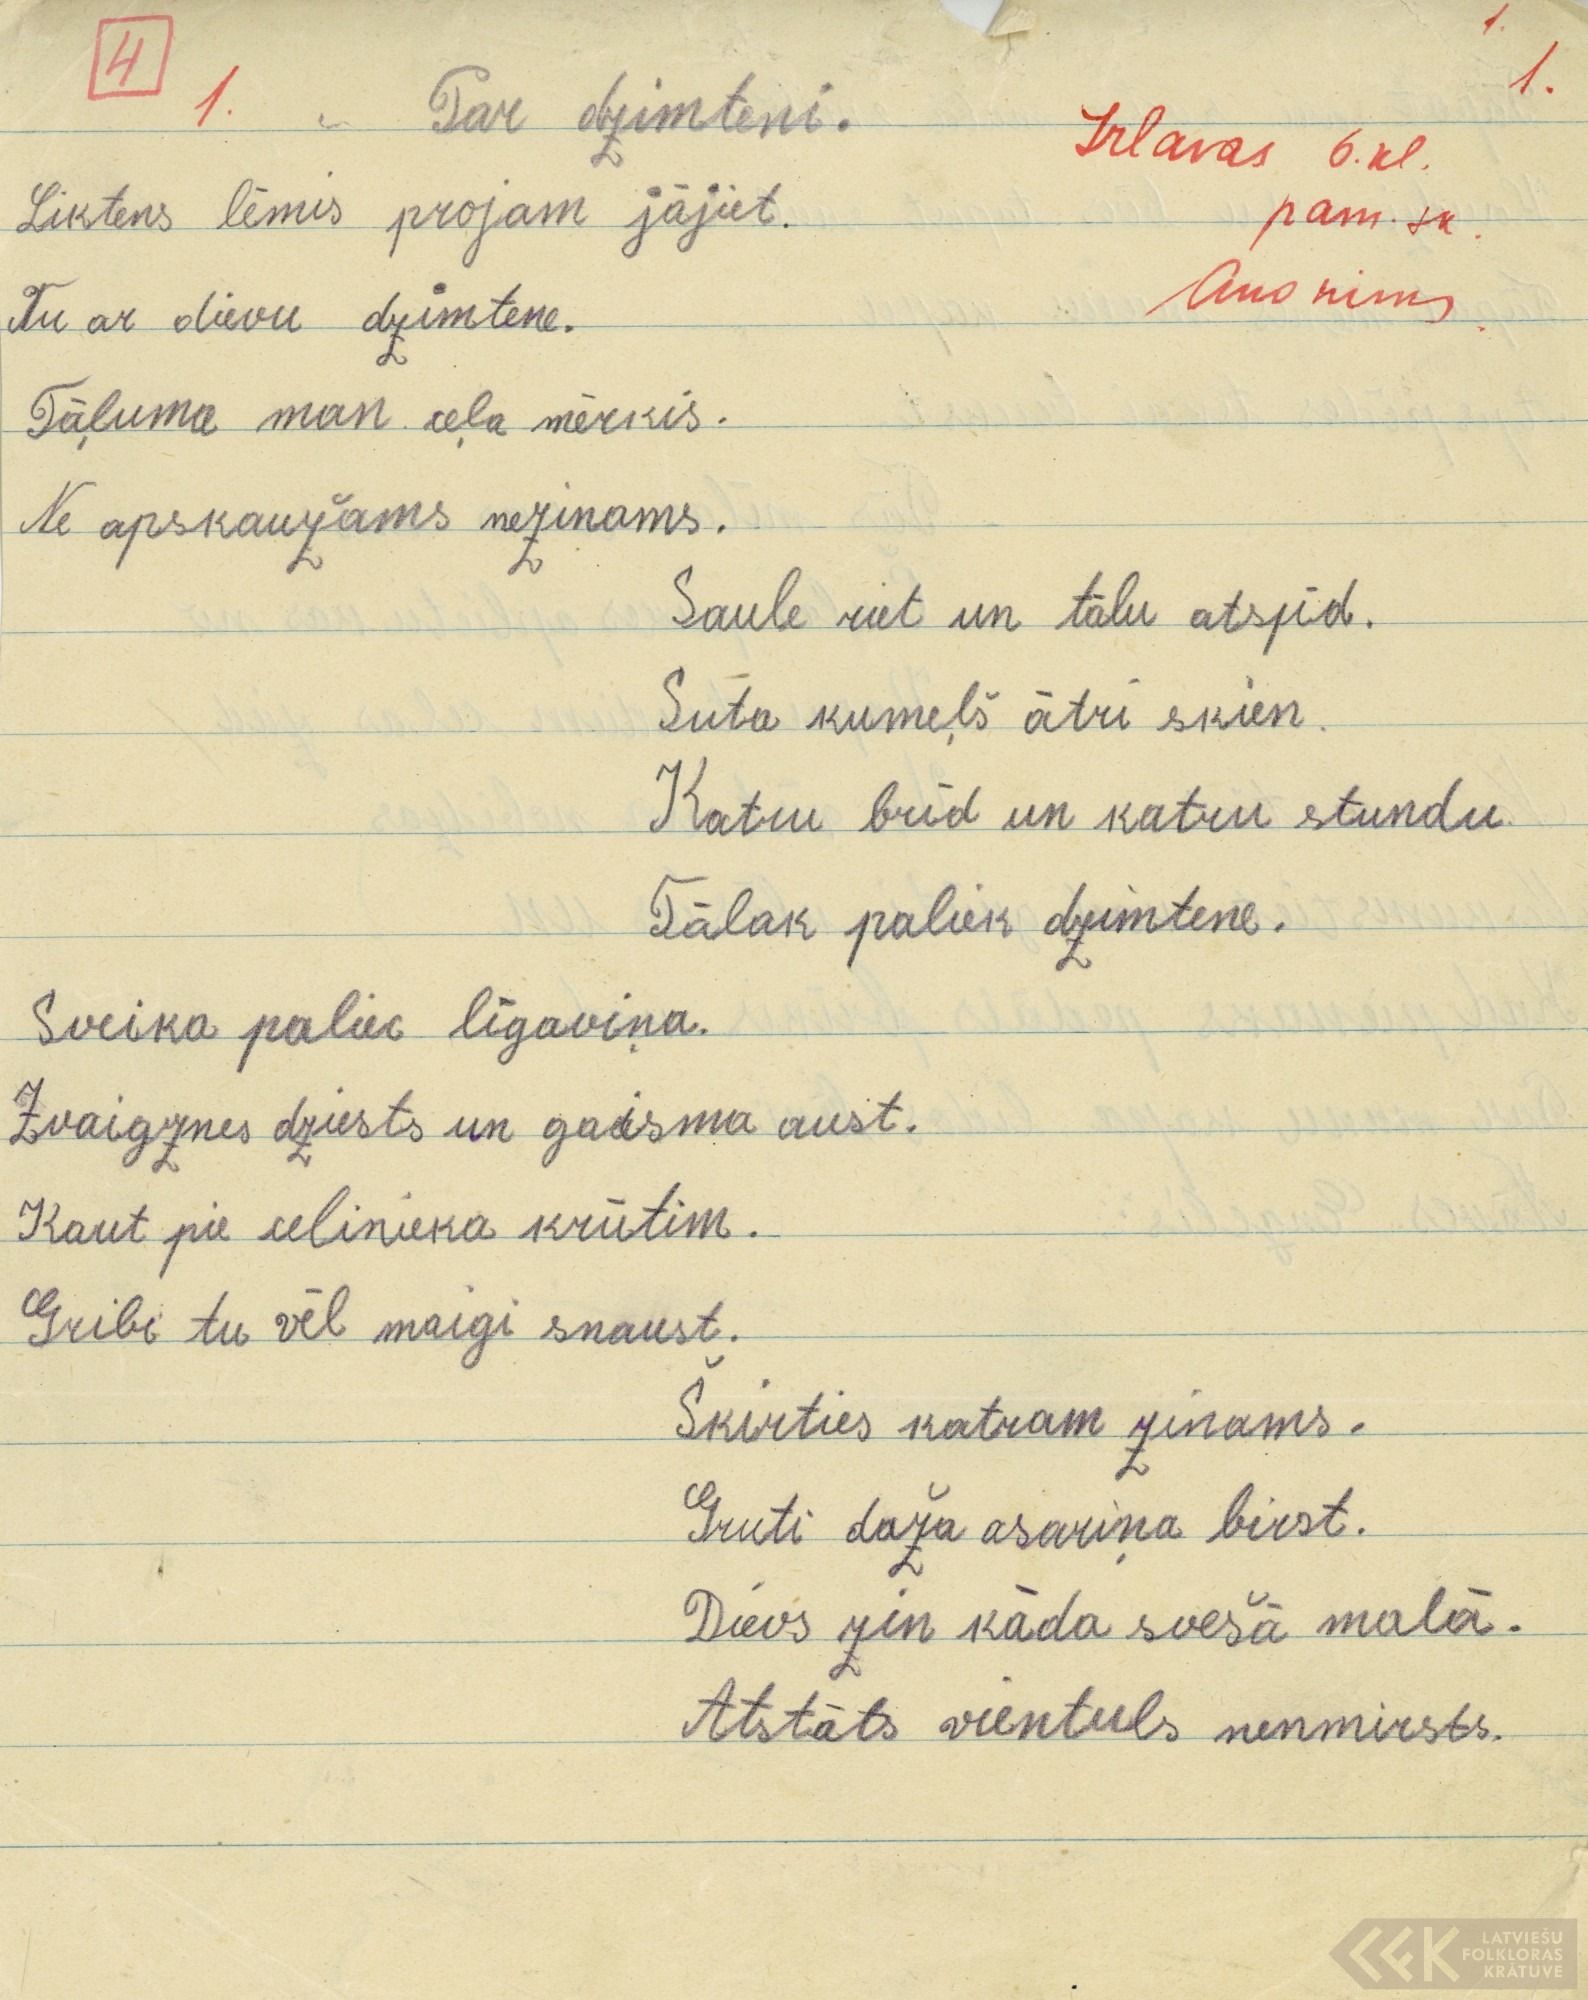 1.
4
1. Par dzimteni.
1.
Irlavas 6. kl.
pam. sk.
Anonims.
Liktens lēmis projam jājiet.
Nu ar dievu dzimtene.
Tāļuma man ceļa mērkis.
Ne apskaužams nezinams.
Saule riet un tālu atspīd.
Sūta kumeļš ātri skien.
Katru brīd un katru stundu
Tālak paliek dzimtene.
Sveika paliec līgaviņa.
Zvaigznes dziests un gaisma aust.
Kaut pie celinieka krūtim.
Gribi tu vēl maigi snaust.
Škirties katram zinams.
Gruti daža asariņa birst.
Dievs zin kāda svešā malā.
Atstāts vientuls nenmirsts.
LATVIEŠU
FOLKLORAS
KRĀTUVE